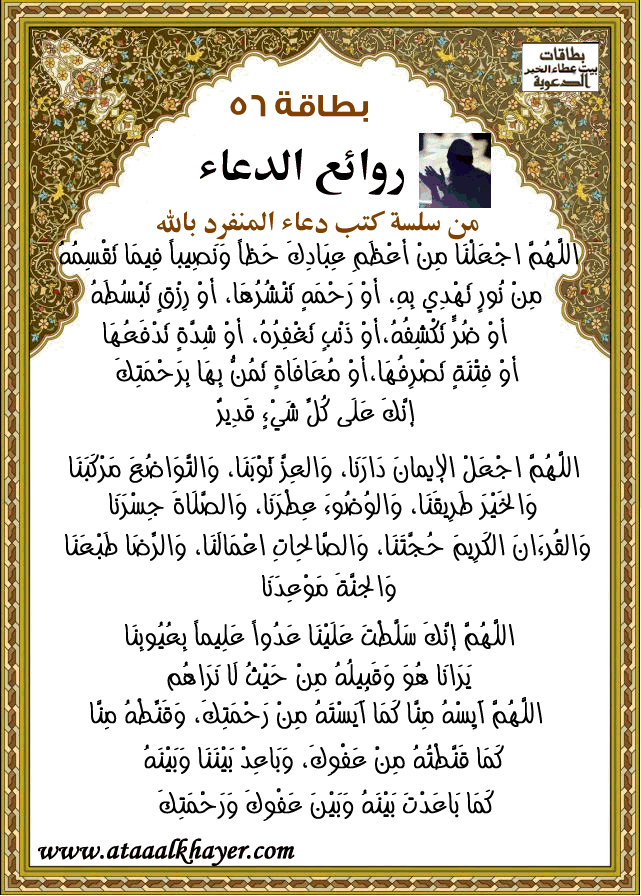 بطاقات
بيت عطاء الخير
الدعوية
بطاقة ٥٦
روائع الدعاء
من سلسة كتب دعاء المنفرد بالله
اللَّهُمَّ اجْعَلْنَا مِنْ أَعْظَمِ عِبَادِكَ حَظّاً وَنَصِيباً فِيمَا تَقْسِمُهُ
مِنْ نُورٍ تَهْدِي بِهِ، أَوْ رَحْمَةٍ تَنْشُرُهَا، أَوْ رِزْقٍ تَبْسُطُهُ
أَوْ ضُرٍّ تَكْشِفُهُ،أَوْ ذَنْبٍ تَغْفِرُهُ، أَوْ شِدَّةٍ تَدْفَعُهَا
أَوْ فِتْنَةٍ تَصْرِفُهَا،أَوْ مُعَافَاةٍ تَمُنُّ بِهَا بِرَحْمَتِكَ
إنَّكَ عَلَى كُلِّ شَيْءٍ قَدِيرٌ
اللَّهُمَّ اجْعَلْ الإيمانَ دَارَنَا، وَالعِزَّ ثَوْبَنَا، وَالتَّوَاضُعَ مَرْكَبَنَا
وَالخَيْرَ طَرِيقَنَا، وَالوُضُوءَ عِطْرَنَا، وَالصَّلَاةَ جِسْرَنَا
وَالقُرءَانَ الكَرِيمَ حُجَّتَنَا، وَالصَّالِحَاتِ اعْمَالَنَا، وَالرِّضَا طَبْعَنَا
وَالجنَّةَ مَوْعِدَنَا
اللَّهُمَّ إنَّكَ سَلَّطْتَ عَلَيْنَا عَدُواً عَلِيماً بِعُيُوبِنَا
يَرَانَا هُوَ وَقَبِيلُهُ مِنْ حَيْثُ لَا نَرَاهُم
اللَّهُمَّ آيِسْهُ مِنَّا كَمَا آيَسْتَهُ مِنْ رَحْمَتِكَ، وَقَنِّطْهُ مِنَّا
كَمَا قَنَّطْتُهُ مِنْ عَفْوِكَ، وَبَاعِدْ بَيْنَنَا وَبَيْنَهُ
كَمَا بَاعَدْتَ بَيْنَهُ وَبَيْنَ عَفْوِكَ وَرَحْمَتِكَ
www.ataaalkhayer.com